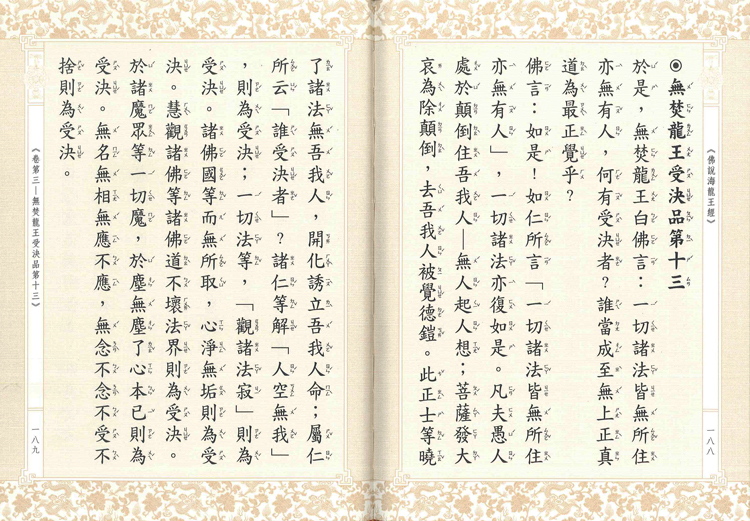 《佛說海龍王經》
一八八
◉無焚龍王受決品第十三
於是，無焚龍王白佛言：一切諸法皆無所住
亦無有人，何有受決者？誰當成至無上正真
道為最正覺乎？
佛言：如是！如仁所言「一切諸法皆無所住
亦無有人」，一切諸法亦復如是。凡夫愚人
處於顛倒住吾我人—無人起人想；菩薩發大
哀為除顛倒，去吾我人被覺德鎧。此正士等曉
了諸法無吾我人，開化誘立吾我人命；屬仁
所云「誰受決者」？諸仁等解「人空無我」
，則為受決；一切法等，「觀諸法寂」則為
受決。諸佛國等而無所取，心淨無垢則為受
決。慧觀諸佛等諸佛道不壞法界則為受決。
於諸魔眾等一切魔，於塵無塵了心本已則為
受決。無名無相無應不應，無念不念不受不
捨則為受決。
《卷第三—無焚龍王受決品第十三》
一八九